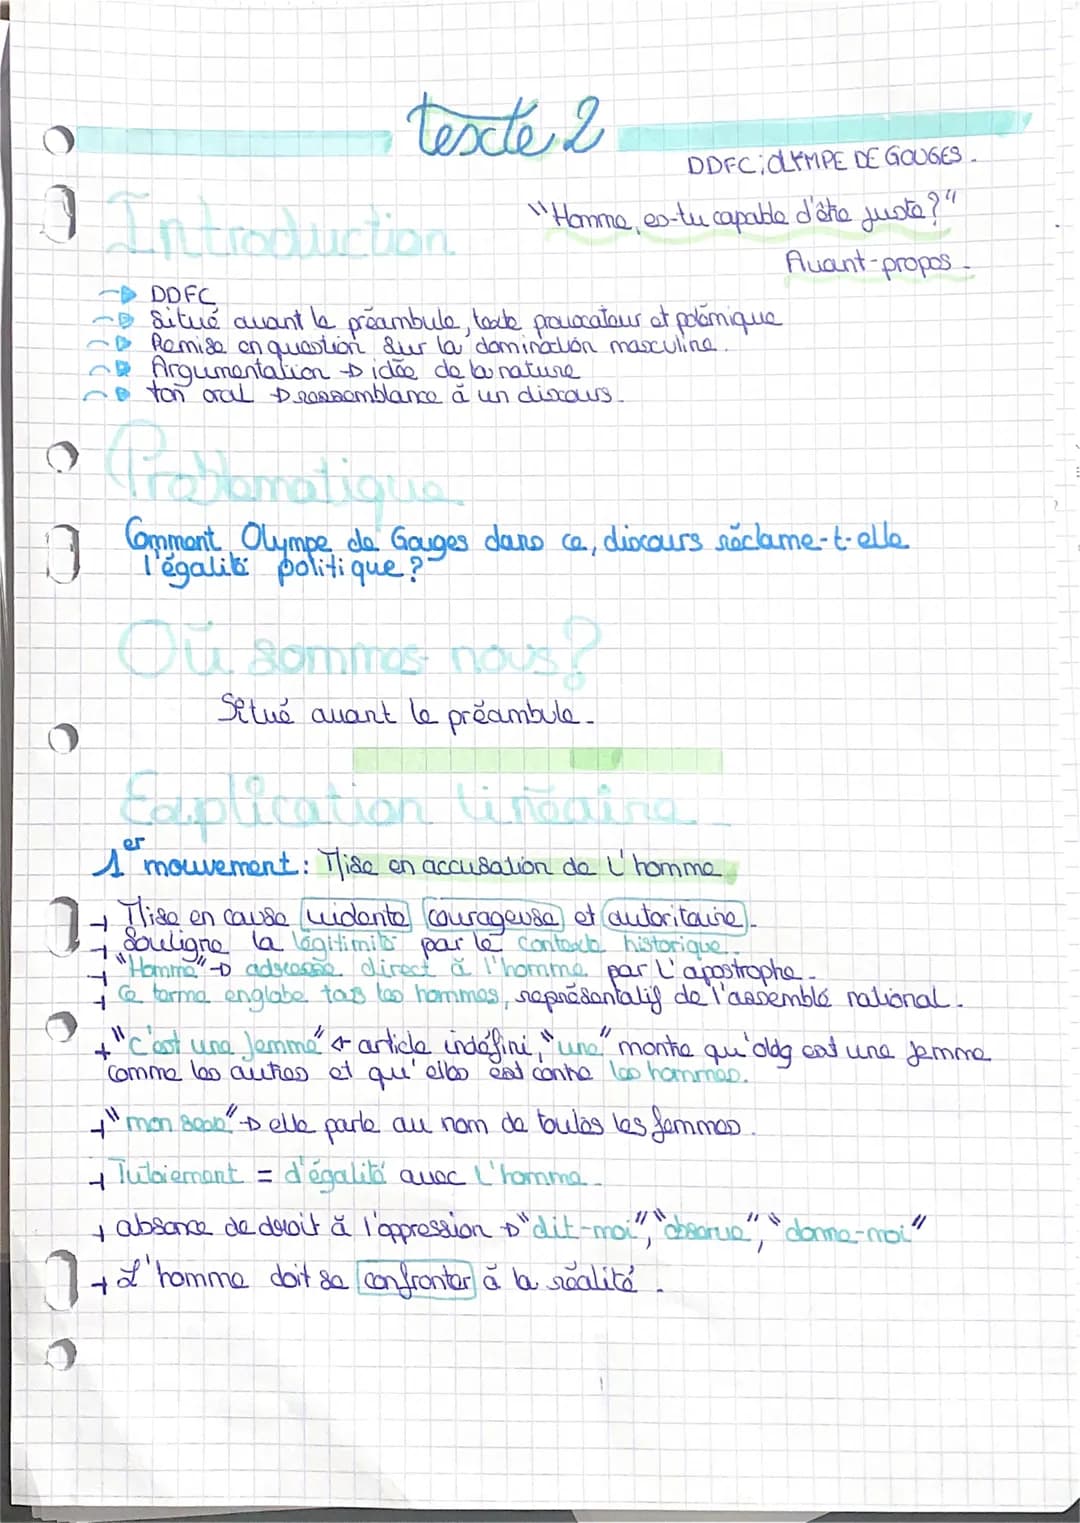 texte 2
DDFC; OLYMPE DE GOUGES.
"Homme, es-tu capable d'être juste?"
Avant-propos.
Introduction
→ DDFC
→ Situé avant le préambule, texte provocateur et polémique
→ Remise en question sur la domination masculine.
→ Argumentation → idée de la nature
→ ton oral → ressemblance à un discours.
Problématique
Comment Olympe de Gouges dans ce, discours réclame-t-elle
l'égalité politique?
Où sommes nous?
Situé avant le préambule.
Explication linéaire
1er mouvement: Mise en accusation de l'homme
+ Mise en cause violente courageuse et autoritaire.
+ Souligne la légitimité par le contexte historique.
+ "Homme" → adressée direct à l'homme par l'apostrophe.
+ Ce terme englobe tous les hommes, représentatif de l'assemblé national.
+ "C'est une femme" ← article indéfini, "une" montre qu'oldg est une femme
comme les autres et qu'elles est contre les hommes.
+ "mon sexe" → elle parle au nom de toutes les femmes.
+ Tutoiement = d'égalité avec l'homme.
+ absence de droit à l'oppression → "dit-moi", "observe", "donne-moi"
+ L'homme doit se confronter à la réalité.